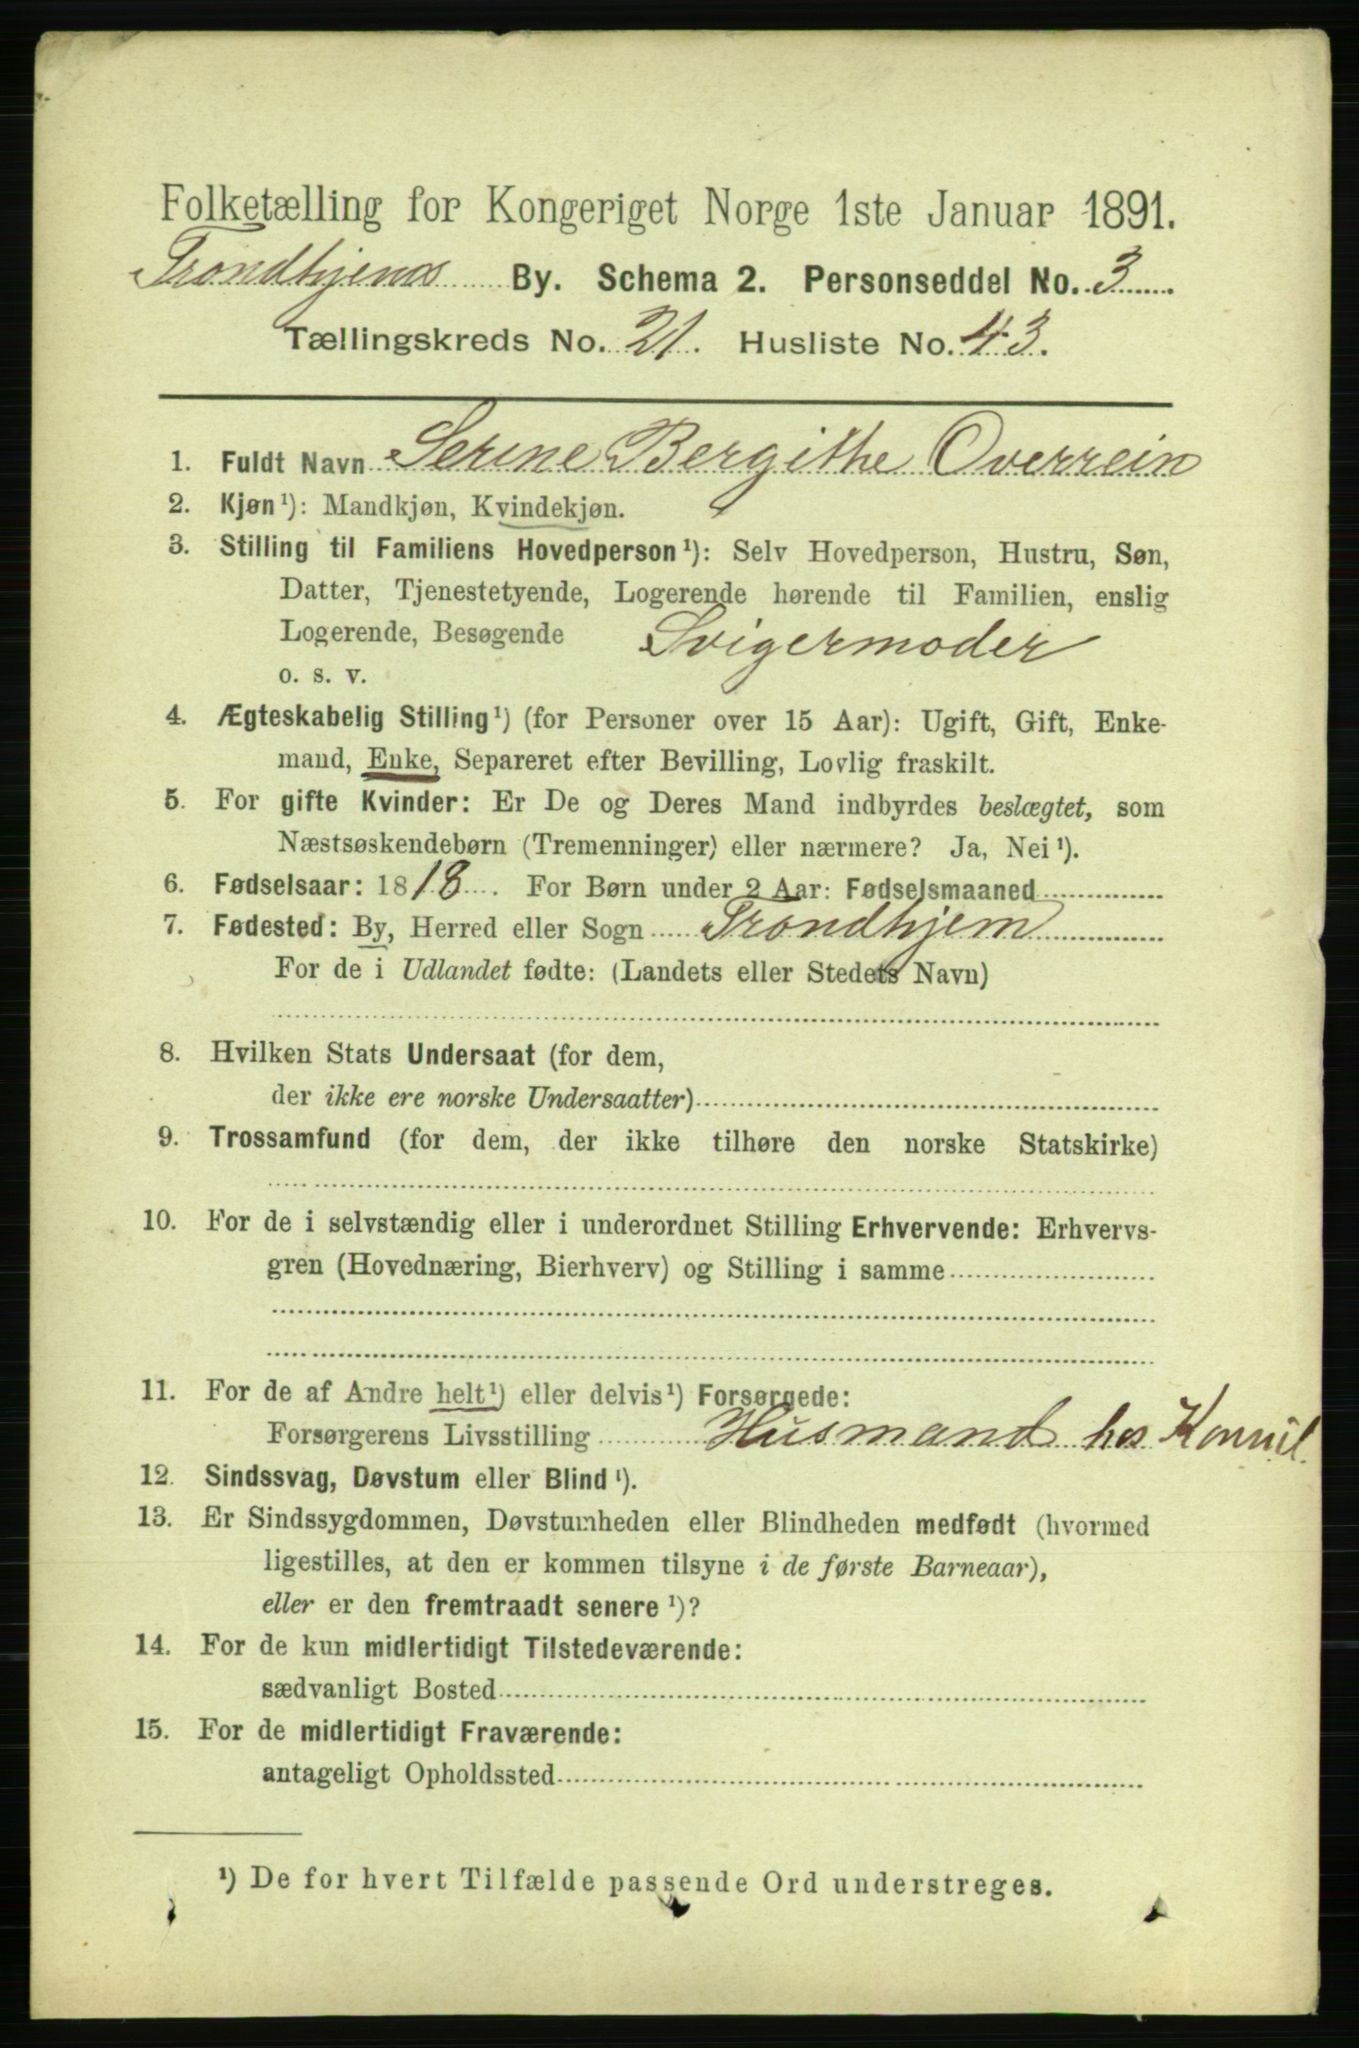 Folketælling for Kongeriget Norge 1ste Januar 1891.
Trondhjems By. Schema 2. Personseddel No. 3
Tællingskreds No. 21. Husliste No. 43.
1. Fuldt Navn Serine Bergithe Overrein
2. Kjøn¹): Mandkjøn, Kvindekjøn.
3. Stilling til Familiens Hovedperson¹): Selv Hovedperson, Hustru, Søn,
Datter, Tjenestetyende, Logerende hørende til Familien, enslig
Logerende, Besøgende Svigermoder
o. s. v.
4. Ægteskabelig Stilling¹) (for Personer over 15 Aar): Ugift, Gift, Enke-
mand, Enke, Separeret efter Bevilling, Lovlig fraskilt.
5. For gifte Kvinder: Er De og Deres Mand indbyrdes beslægtet, som
Næstsøskendebørn (Tremenninger) eller nærmere? Ja, Nei¹).
6. Fødselsaar: 1818. For Børn under 2 Aar: Fødselsmaaned
7. Fødested: By, Herred eller Sogn Trondhjem
For de i Udlandet fødte: (Landets eller Stedets Navn)
8. Hvilken Stats Undersaat (for dem,
der ikke ere norske Undersaatter)
9. Trossamfund (for dem, der ikke tilhøre den norske Statskirke)
10. For de i selvstændig eller i underordnet Stilling Erhvervende: Erhvervs-
gren (Hovednæring, Bierhverv) og Stilling i samme
11. For de af Andre helt¹) eller delvis¹) Forsørgede:
Forsørgerens Livsstilling Husmand hos
12. Sindssvag, Døvstum eller Blind¹).
13. Er Sindssygdommen, Døvstumheden eller Blindheden medfødt (hvormed
ligestilles, at den er kommen tilsyne i de første Barneaar),
eller er den fremtraadt senere¹)?
14. For de kun midlertidigt Tilstedeværende:
sædvanligt Bosted
15. For de midlertidigt Fraværende:
antageligt Opholdssted
¹) De for hvert Tilfælde passende Ord understreges.